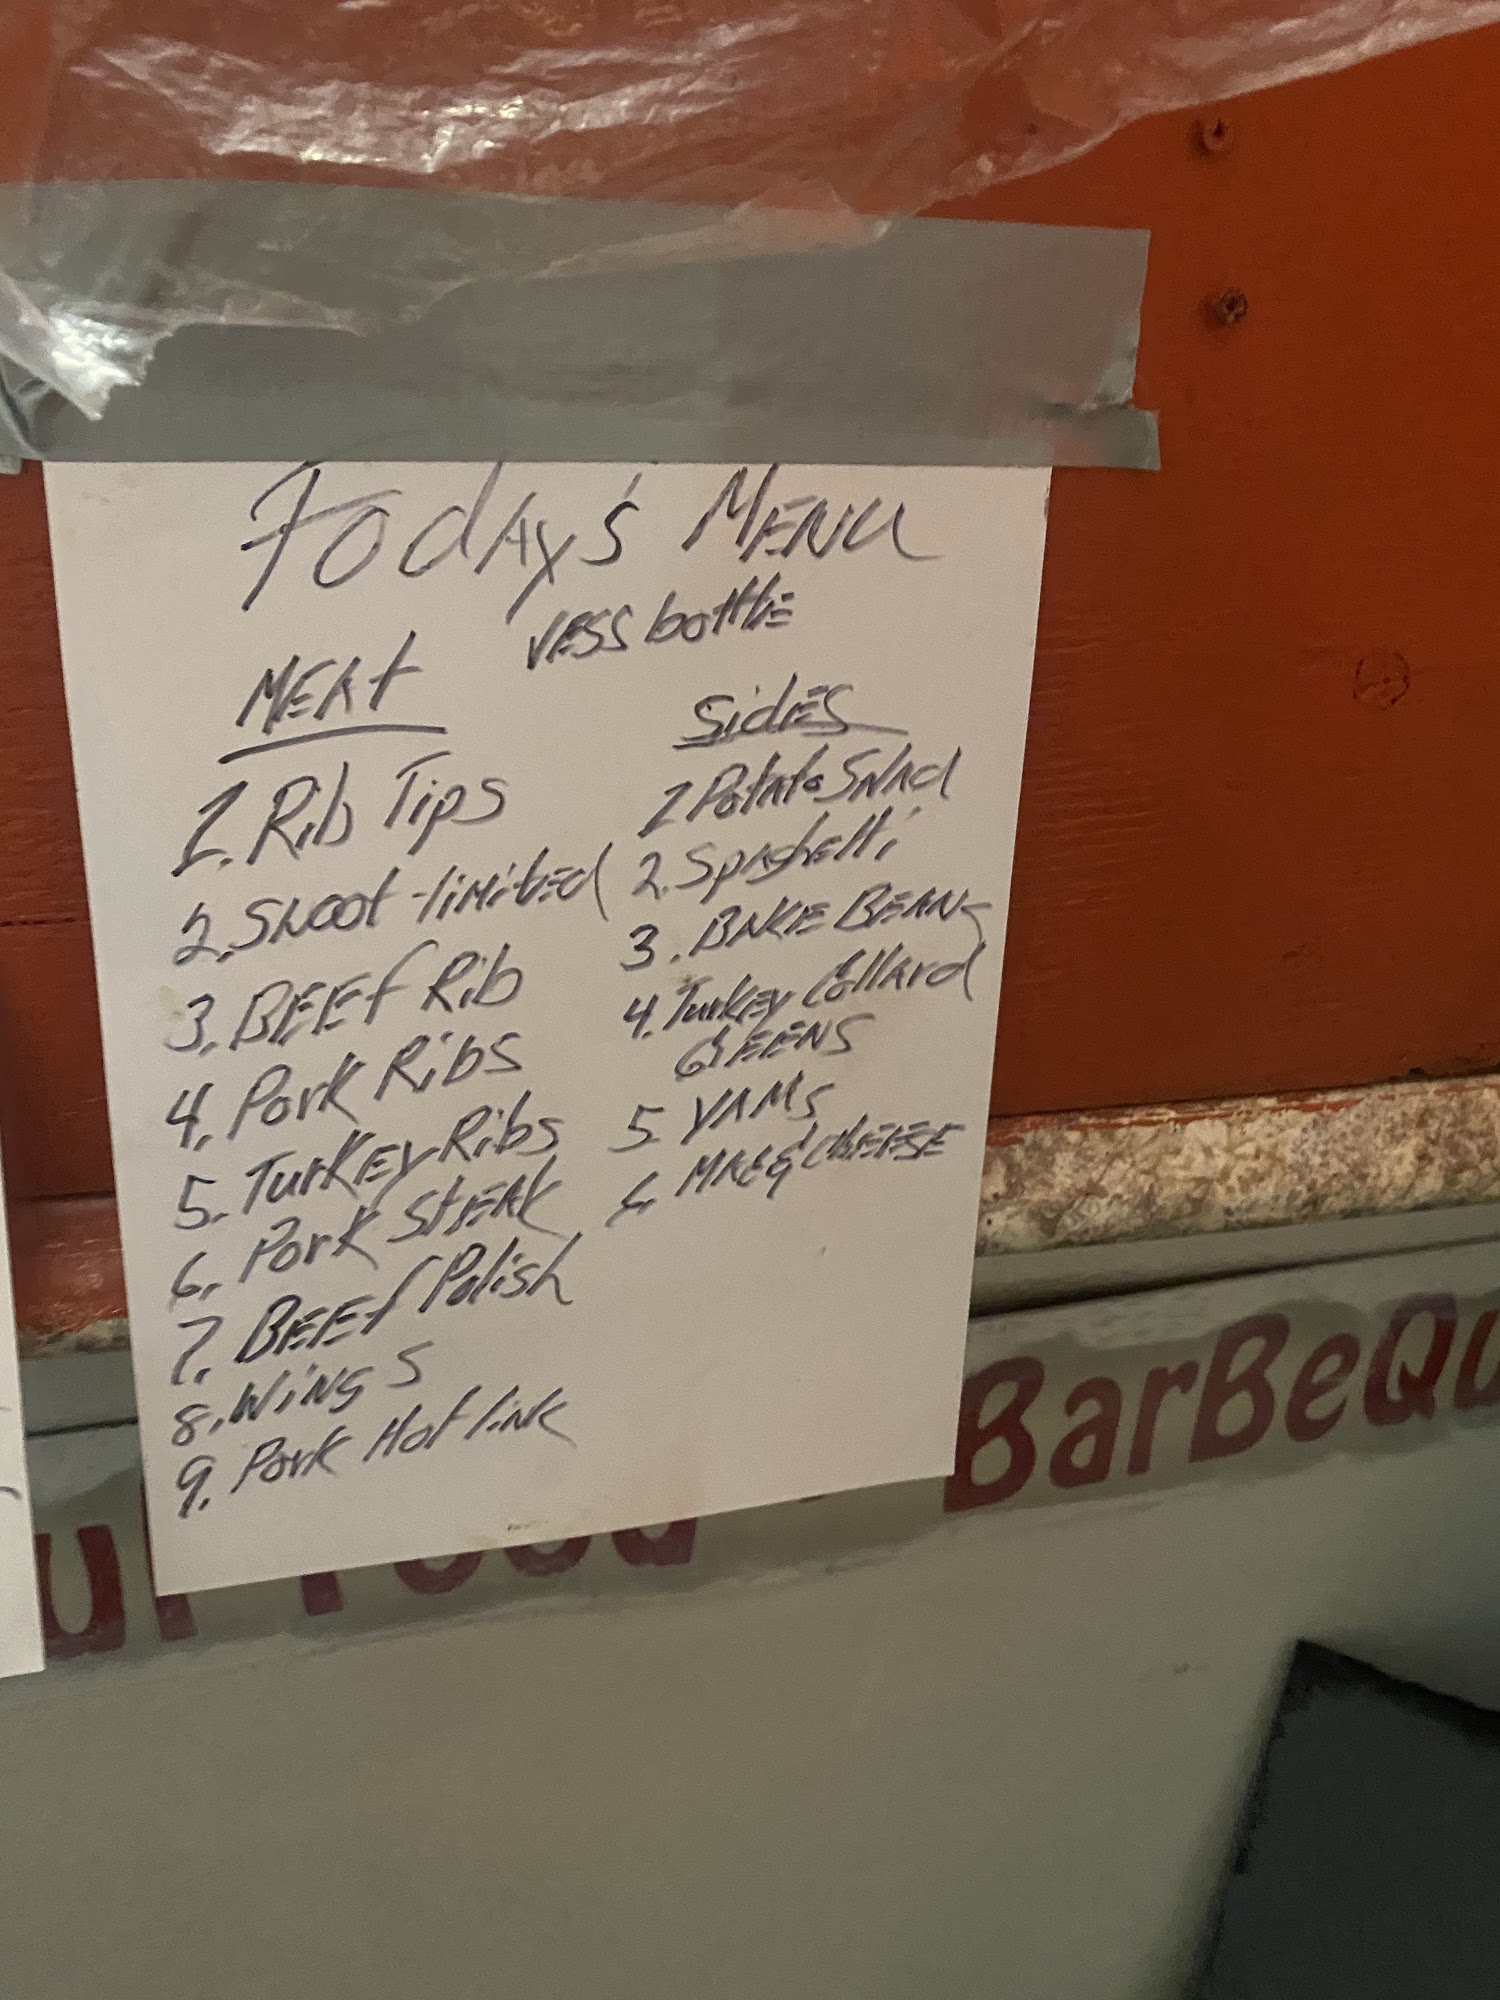 Today's MENU
VESS bottle
MEAt
1. Rib Tips
2. Snoot-limited
3. BEEf Rib
4. Pork Ribs
5. Turkey Ribs
6. Pork StEAK
7. BEEf Polish
8. WiNg S
9. Pork Hot link
SidES
1 Potato SAlAd
2. Spaghetti
3. BAKE BEANS
4. Turkey Collard
GREENS
5 YAMS
6. MAC & CHEESE
BarBeQu